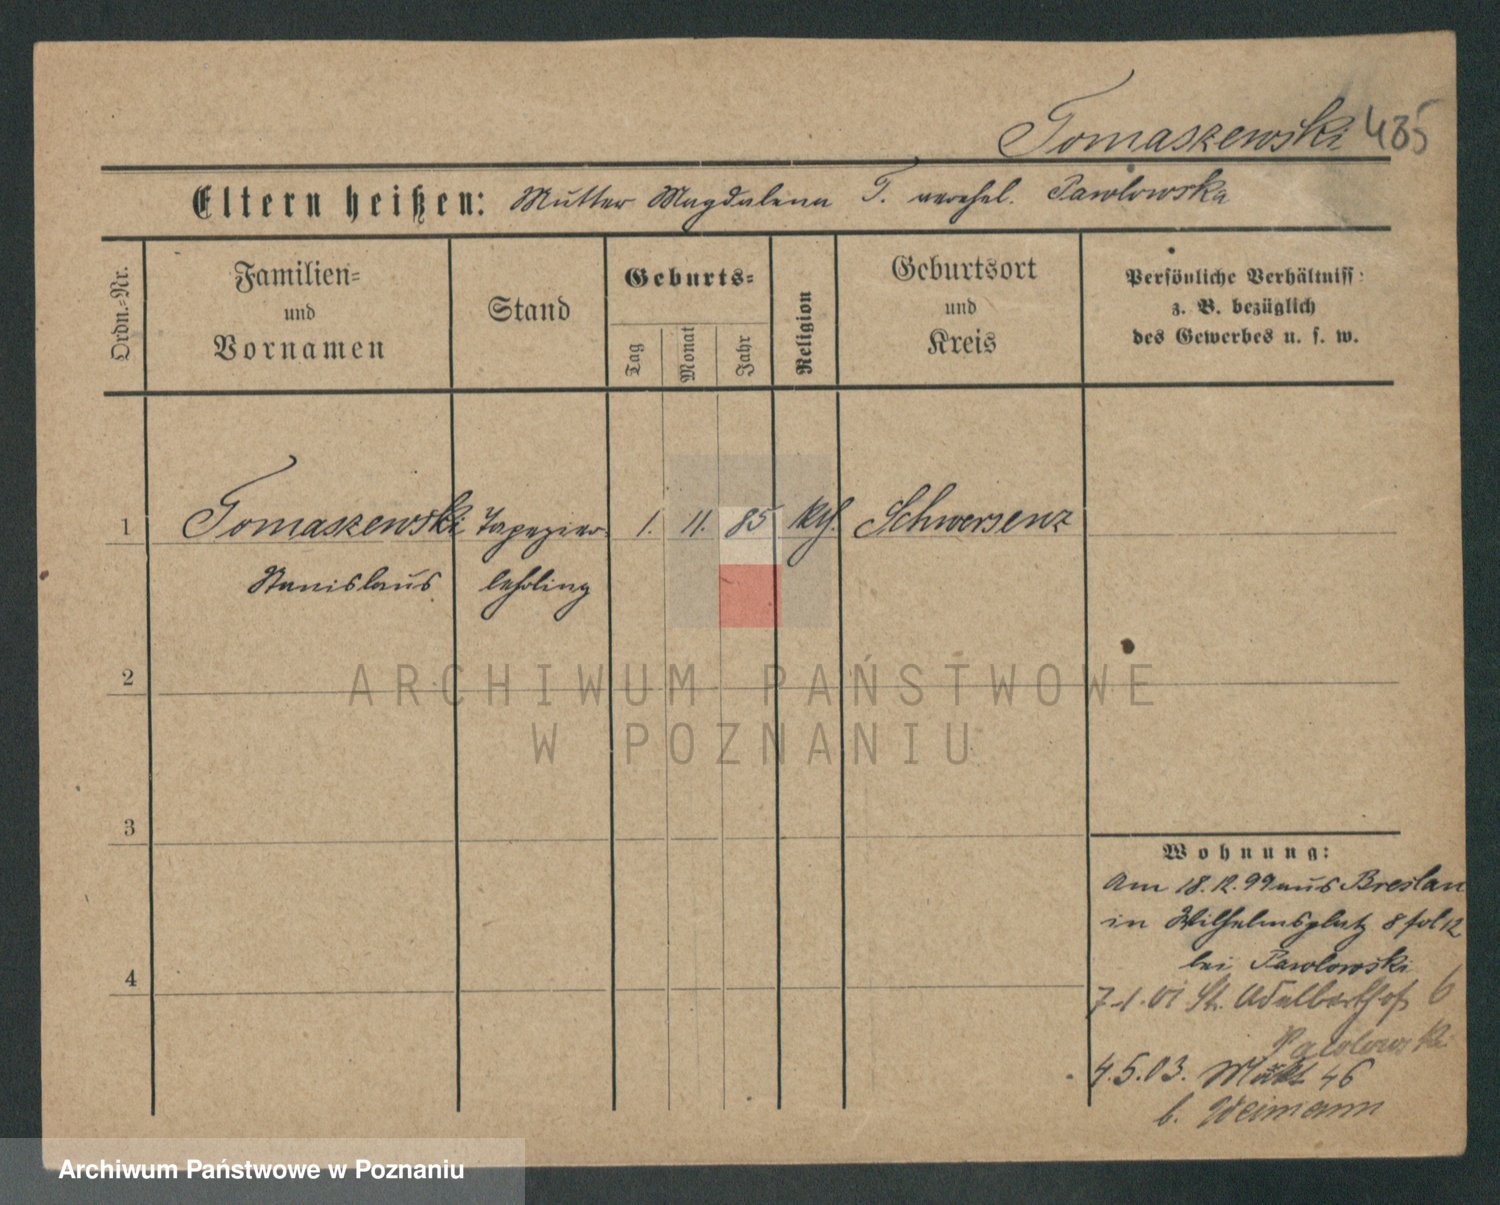 Tomaszewski 485
Eltern heißen: Mutter Magdalena T. verehel. Pawlowska
Ordn.-Nr.
Familien-
und
Vornamen
Stand
Geburts-
Tag
Monat
Jahr
Religion
Geburtsort
und
Kreis
Persönliche Verhältniss:
z. B. bezüglich
des Gewerbes u. s. w.
1 Tomaszewski Tapezier- 1. 11. 85 kth. Schwersenz
Stanislaus lehrling
2
3
4
Wohnung:
Am 18.12.99 aus Breslau
in Wilhelmsplatz 8 fol 12
bei Pawlowski
7.1.01 St. Adalberthof 6
Pawlowski
4.5.03. Markt 46
b. Weimann
ARCHIWUM PAŃSTWOWE
W POZNANIU
Archiwum Państwowe w Poznaniu